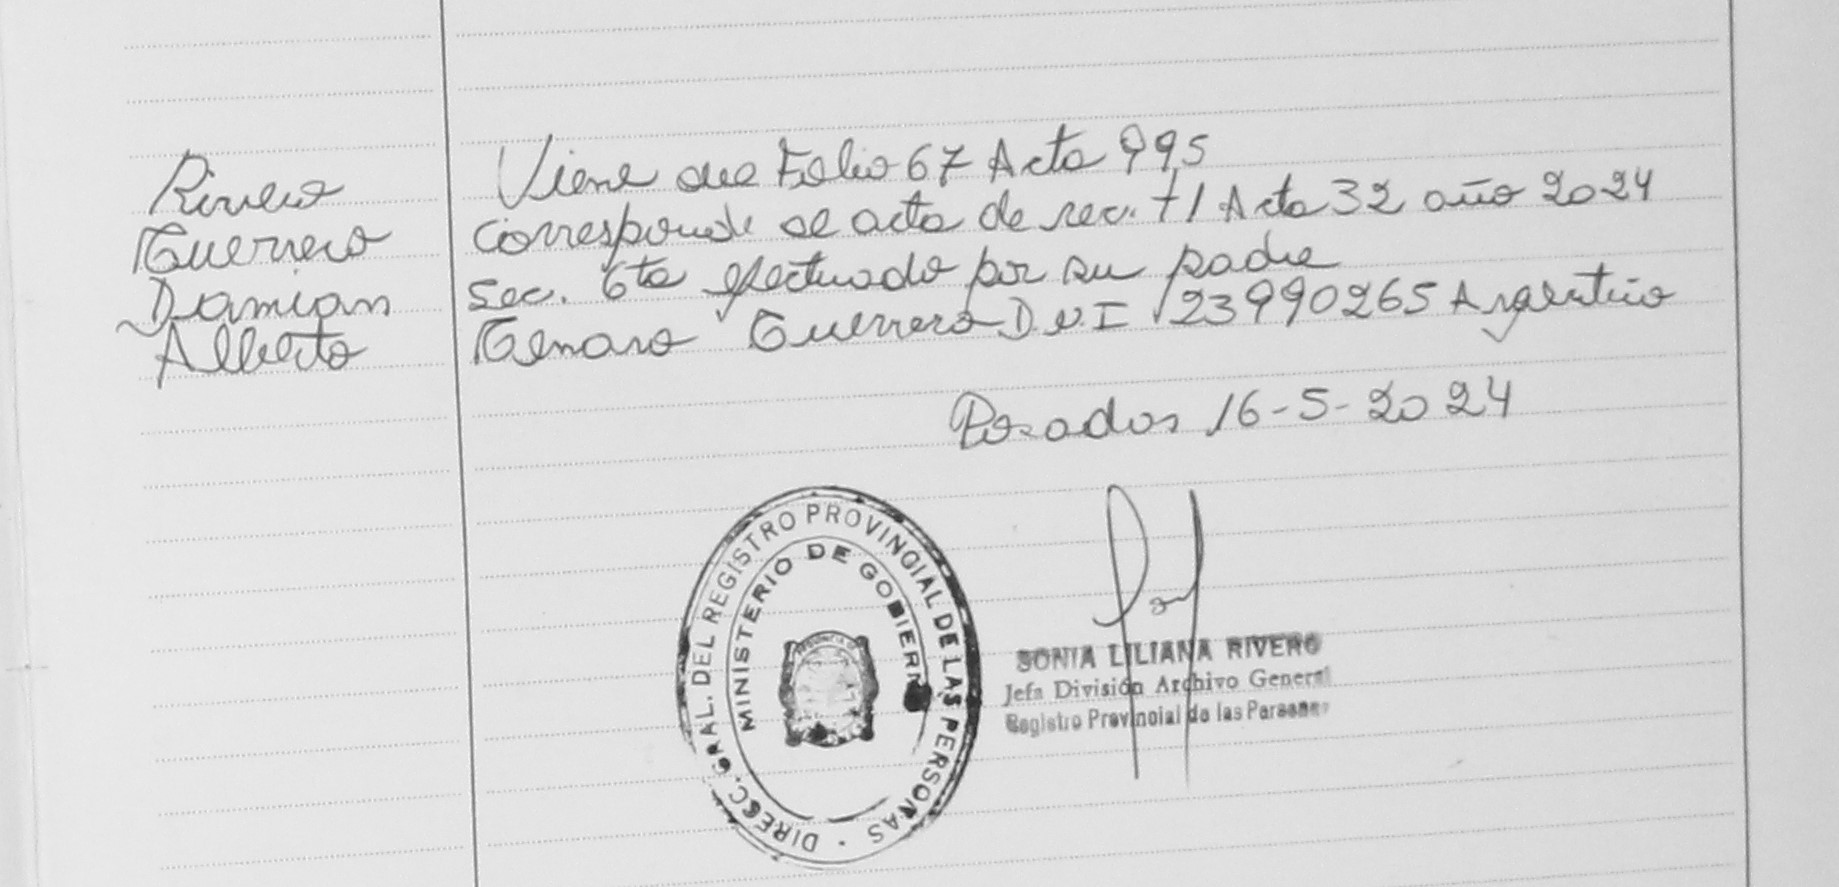 Rivero
Guerrero
Damian
Alberto
Viene del Folio 67 Acta 995
corresponde al acta de rec. t1 Acta 32 año 2024
Sec. 6ta efectuado por su padre
Genaro Guerrero D.N.I 23990265 Argentino
Posadas 16-5-2024
DIRECC. GRAL. DEL REGISTRO PROVINCIAL DE LAS PERSONAS
MINISTERIO DE GOBIERNO
SONIA LILIANA RIVERO
Jefa División Archivo General
Registro Provincial de las Personas